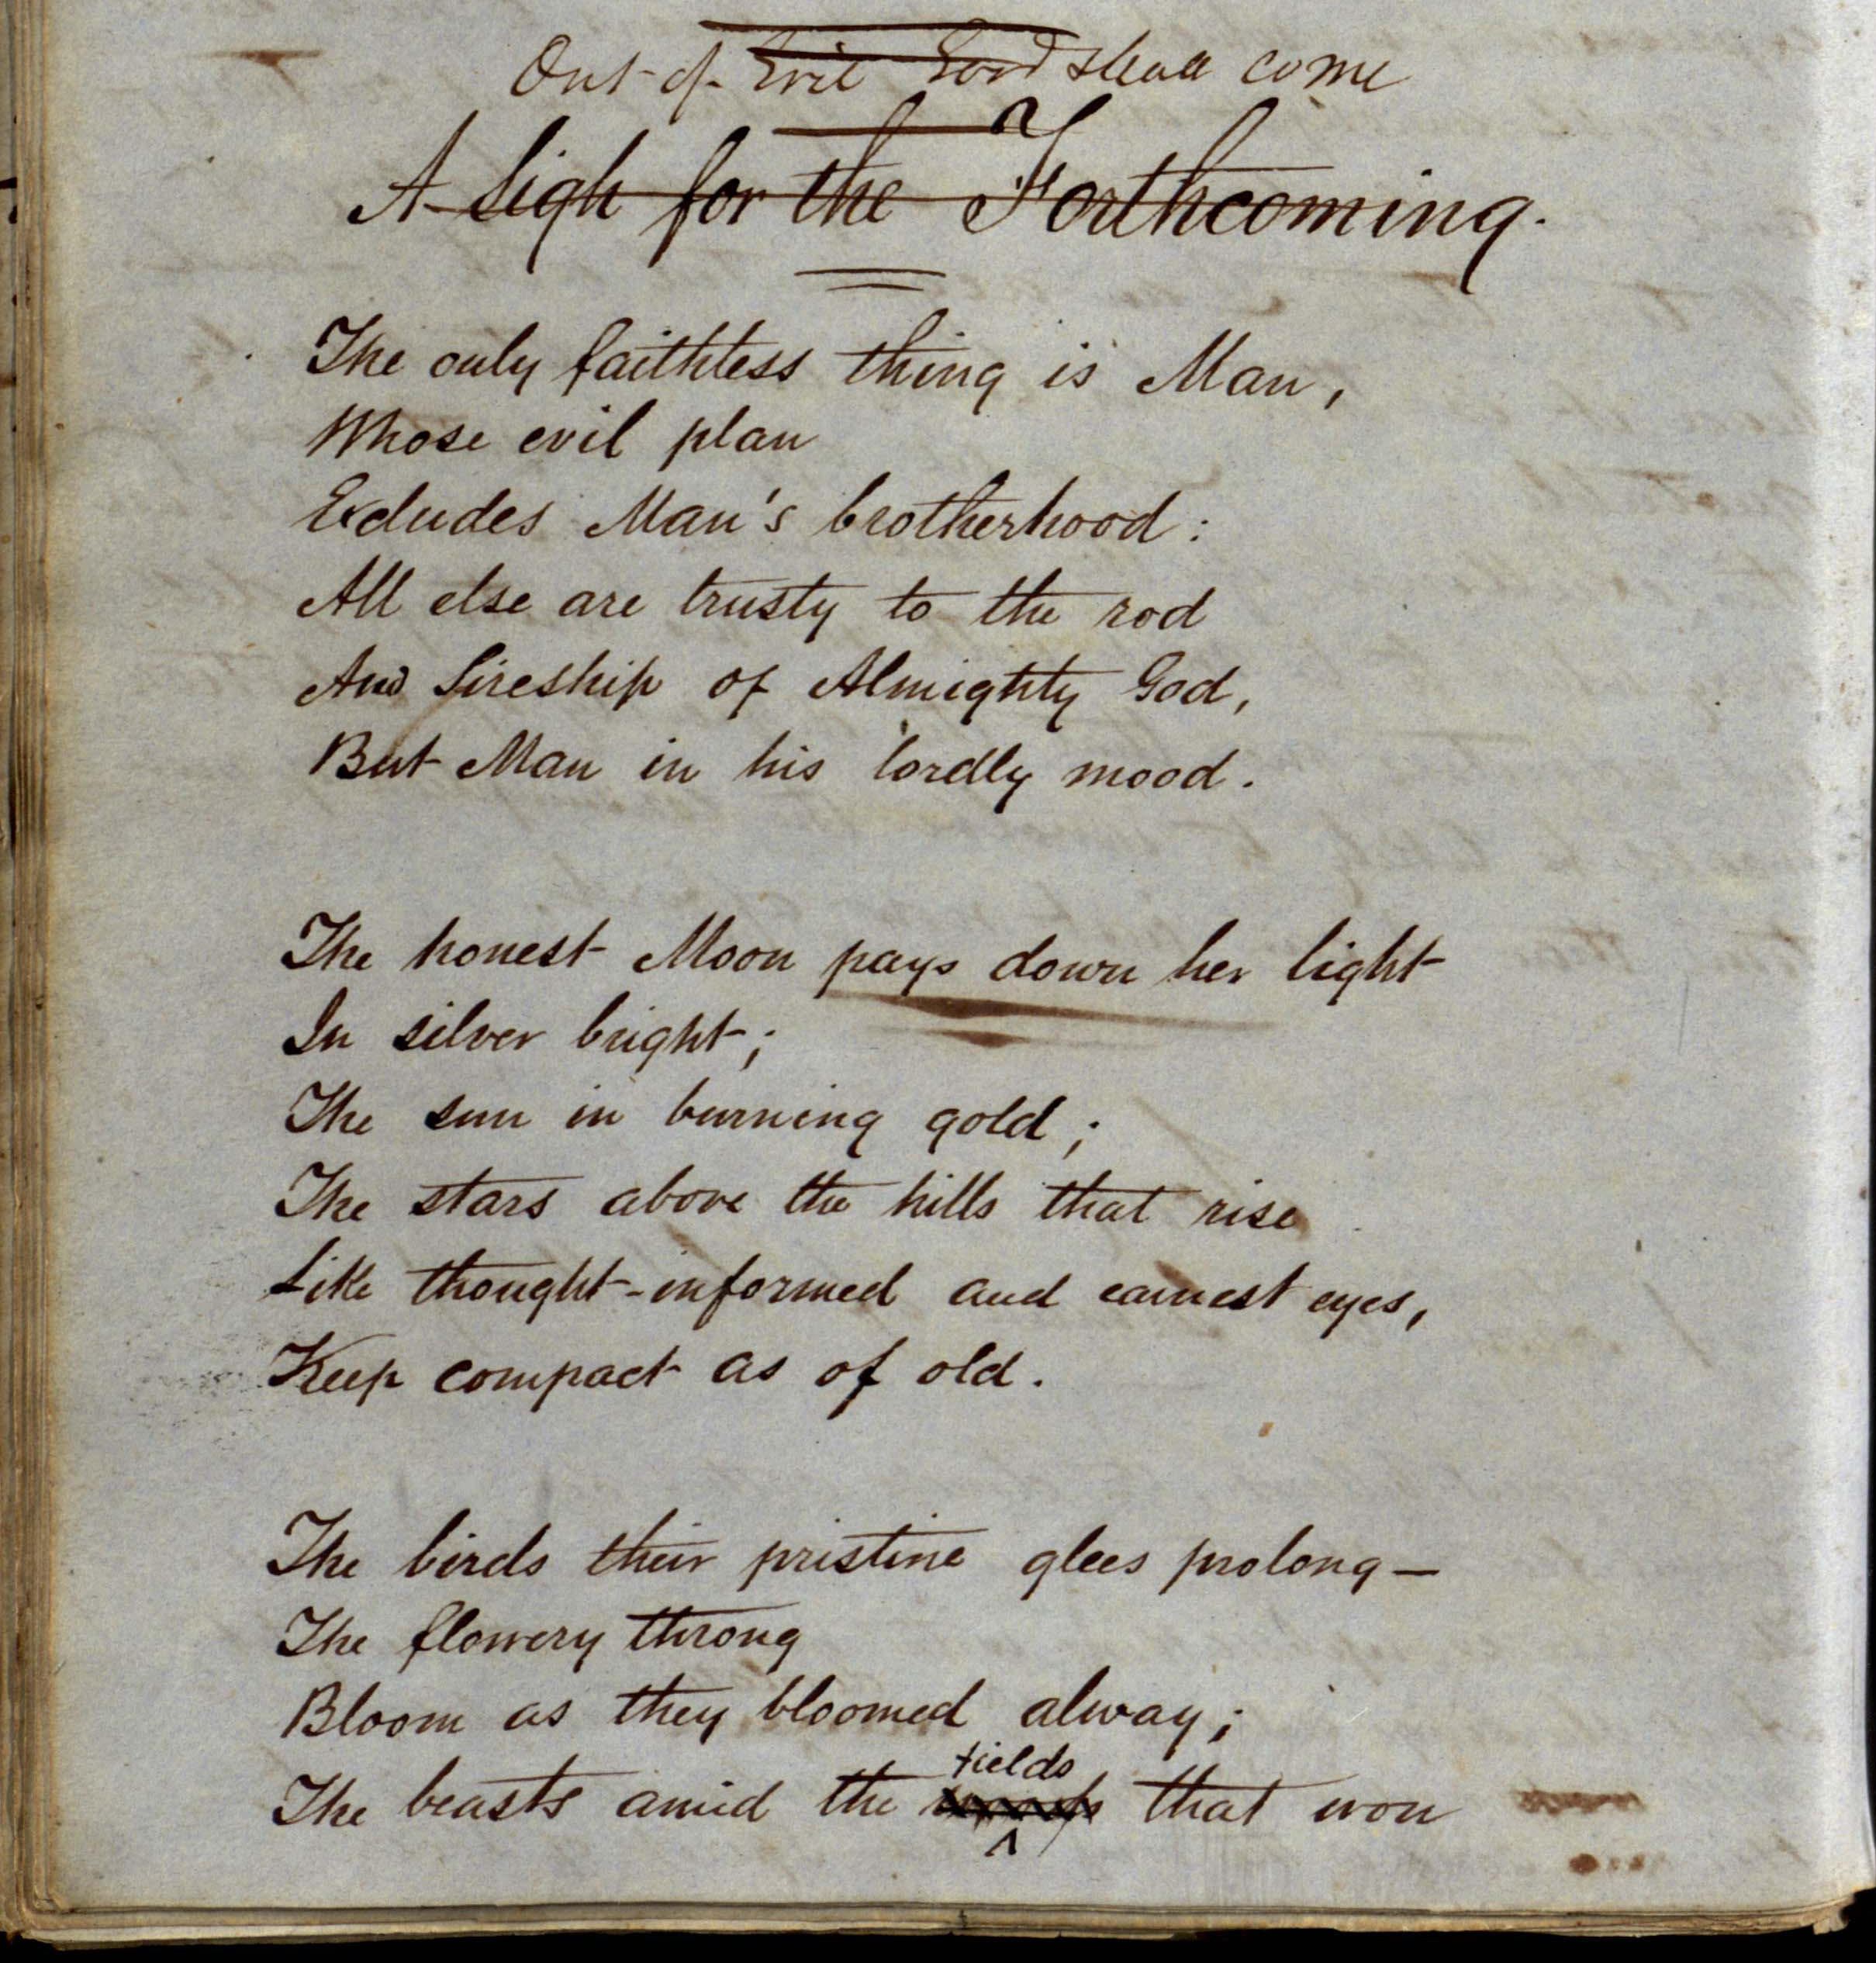 Out of Evil Good shall come
A Sigh for the Forthcoming.
The only faithless thing is Man,
Whose evil plan
Excludes Man's brotherhood:
All else are trusty to the rod
And Sireship of Almighty God,
But Man in his lordly mood.
The honest Moon pays down her light
In silver bright;
The sun in burning gold;
The stars above the hills that rise
Like thought-informed and earnest eyes,
Keep compact as of old.
The birds their pristine glees prolong—
The flowery throng
Bloom as they bloomed alway;
fields
The beasts amid the that won